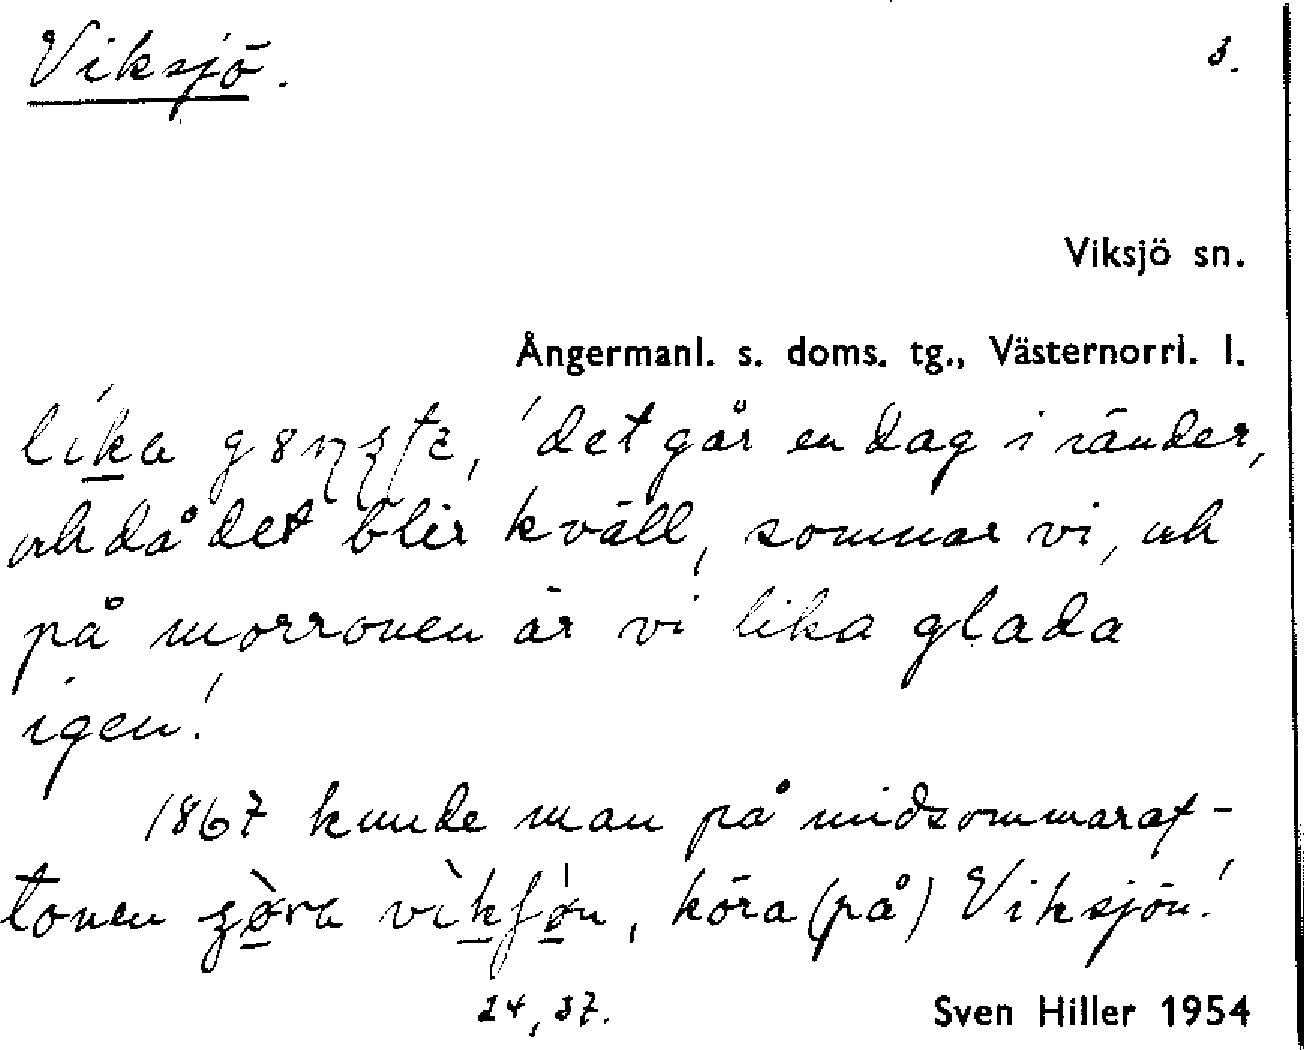 Viksjö. 3.
Viksjö sn.
Ångermanl. s. doms. tg., Västernorrl. l.
lika 'det går en dag i ränder,
och då det blir kväll, somnar vi, och
på morronen är vi lika glada
igen!
1867 kunde man på midsommaraf-
tonen köra (på) Viksjön!
24, 37. Sven Hiller 1954